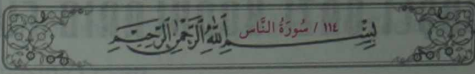 ١١٤ / سُورَةُ النَّاس بِسْمِ اللَّهِ الرَّحْمَٰنِ الرَّحِيمِ